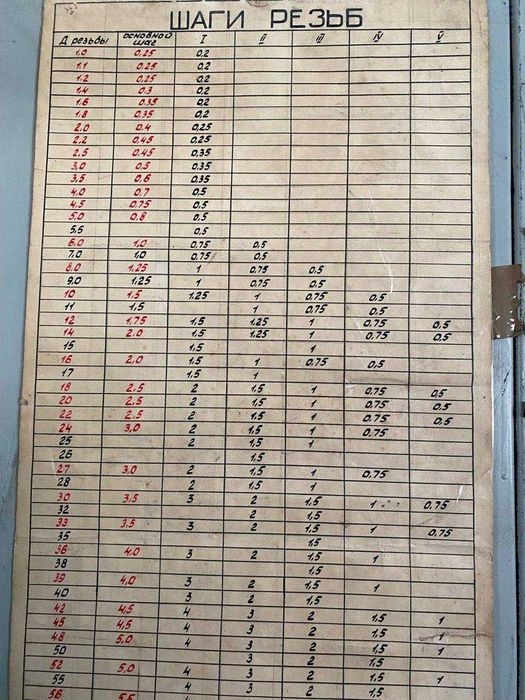 ШАГИ РЕЗЬБ
Д резьбы основной шаг I II III IV V
1,0 0,25 0,2
1,1 0,25 0,2
1,2 0,25 0,2
1,4 0,3 0,2
1,6 0,35 0,2
1,8 0,35 0,2
2,0 0,4 0,25
2,2 0,45 0,25
2,5 0,45 0,35
3,0 0,5 0,35
3,5 0,6 0,35
4,0 0,7 0,5
4,5 0,75 0,5
5,0 0,8 0,5
5,5 0,5
6,0 1,0 0,75 0,5
7,0 1,0 0,75 0,5
8,0 1,25 1 0,75 0,5
9,0 1,25 1 0,75 0,5
10 1,5 1,25 1 0,75 0,5
11 1,5 1 0,75 0,5
12 1,75 1,5 1,25 1 0,75 0,5
14 2,0 1,5 1,25 1 0,75 0,5
15 1,5 1
16 2,0 1,5 1 0,75 0,5
17 1,5 1
18 2,5 2 1,5 1 0,75 0,5
20 2,5 2 1,5 1 0,75 0,5
22 2,5 2 1,5 1 0,75 0,5
24 3,0 2 1,5 1 0,75
25 2 1,5 1
26 1,5
27 3,0 2 1,5 1 0,75
28 2 1,5 1
30 3,5 3 2 1,5 1 0,75
32 2 1,5
33 3,5 3 2 1,5 1 0,75
35 1,5
36 4,0 3 2 1,5 1
38 1,5
39 4,0 3 2 1,5 1
40 3 2 1,5
42 4,5 4 3 2 1,5 1
45 4,5 4 3 2 1,5 1
48 5,0 4 3 2 1,5 1
50 3 2 1,5
52 5,0 4 3 2 1,5 1
55 4 3 2 1,5
56 5,5 4 3 2 1,5